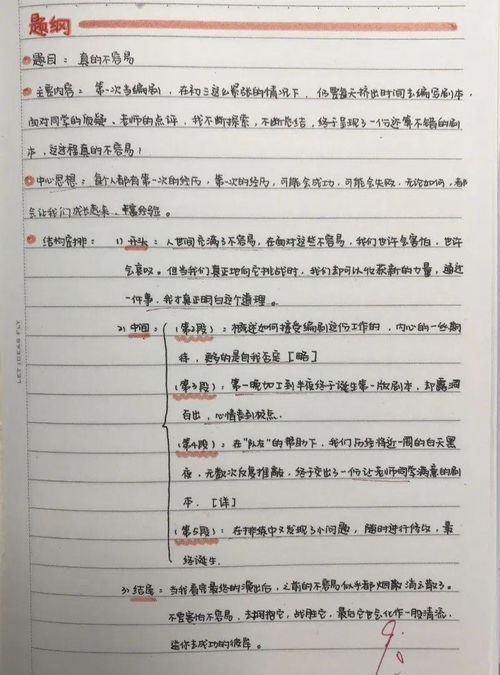 题纲
题目：真的不容易
主要内容：第一次当编剧，在初三这么紧张的情况下，仍要每天挤出时间去编写剧本，
面对同学的质疑、老师的点评，我不断探索，不断总结，终于呈现了一份还算不错的剧
本，这过程真的不容易！
中心思想：每个人都有第一次的经历，第一次的经历，可能会成功，可能会失败，无论如何，都
会让我们成长起来，丰富经验。
结构安排：1）开头：人世间充满了不容易，在面对这些不容易，我们也许会害怕，也许
会哀叹。但当我们真正地向它挑战时，我们却可以收获新的力量，通过
一件事，我才真正明白这个道理。
2）中间：（第2段）：概述如何接受编剧这份工作的，内心的一丝期
待，更多的是自我否定［略］
（第3段）：第一晚加工到半夜终于诞生第一版剧本，却露洞
百出，心情差到极点．
（第4段）：在“队友”的帮助下，我们历经将近一周的白天黑
夜，无数次反复推敲，终于交出了一份让老师同学满意的剧
本．［详］
（第5段）：在排练中又发现了小问题，随时进行修改，最
终诞生．
3）结尾：当我看完最终的演出后，之前的不容易似乎都烟散消云散了。
不要害怕不容易，去拥抱它，战胜它，最后它也会化作一股清流，
送你去成功的彼岸。
LET IDEAS FLY